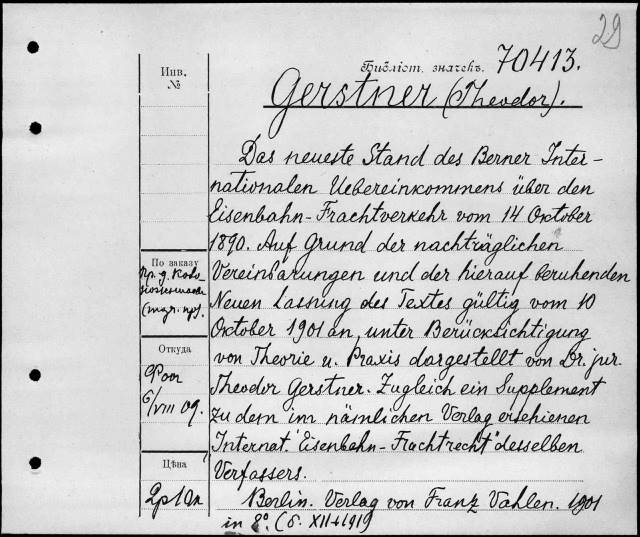 29
Инв. №
Библіот. значекъ. 70413.
Gerstner (Theodor).
Das neueste Stand des Berner Inter-
nationalen Uebereinkommens über den
Eisenbahn-Frachtverkehr vom 14 Oktober
1890. Auf Grund der nachträglichen
Vereinbarungen und der hierauf beruhenden
Neuen Lassung des Textes gültig vom 10
Oktober 1901 an, unter Berücksichtigung
von Theorie u. Praxis dargestellt von Dr. jur.
Theodor Gerstner. Zugleich ein Supplement
zu dem im nämlichen Verlag erschienen
Internat. "Eisenbahn-Frachtrecht" desselben
Verfassers.
Berlin. Verlag von Franz Vahlen. 1901
in 8° (6. XII+191)
По заказу
пр. д.
Откуда
6/VIII 09.
Цѣна